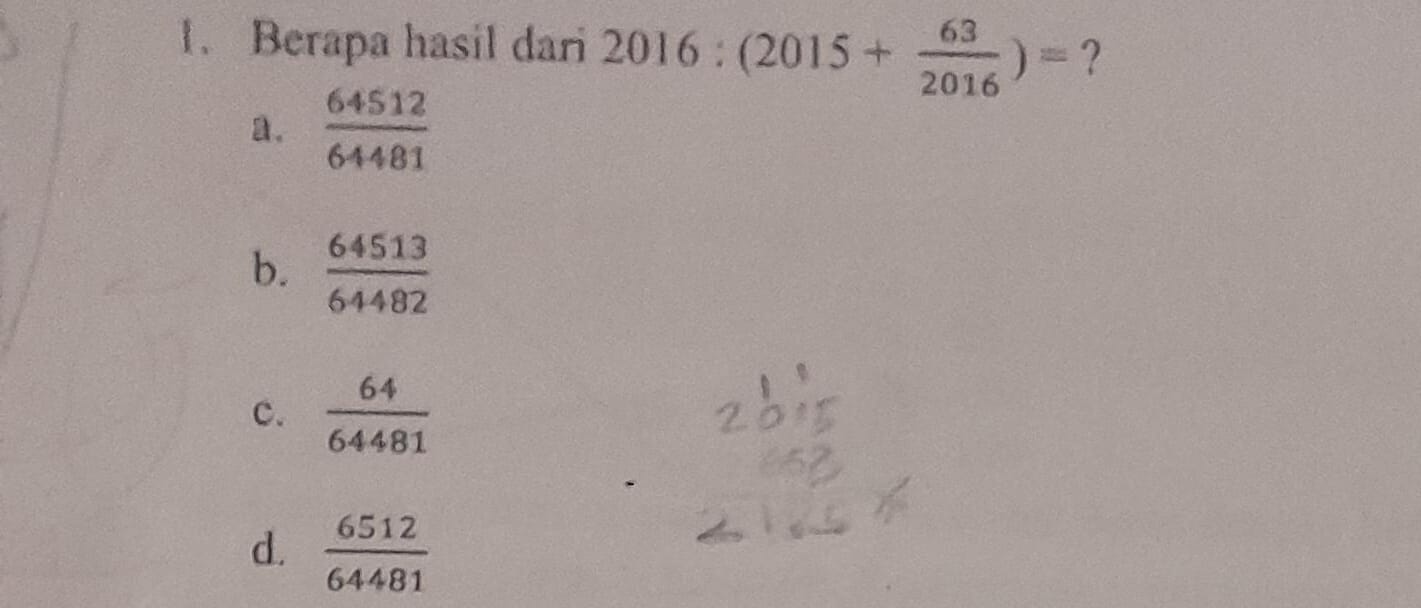 1. Berapa hasil dari 2016 : (2015 + 63/2016) = ?
a. 64512/64481
b. 64513/64482
c. 64/64481
d. 6512/64481
1 1
2015